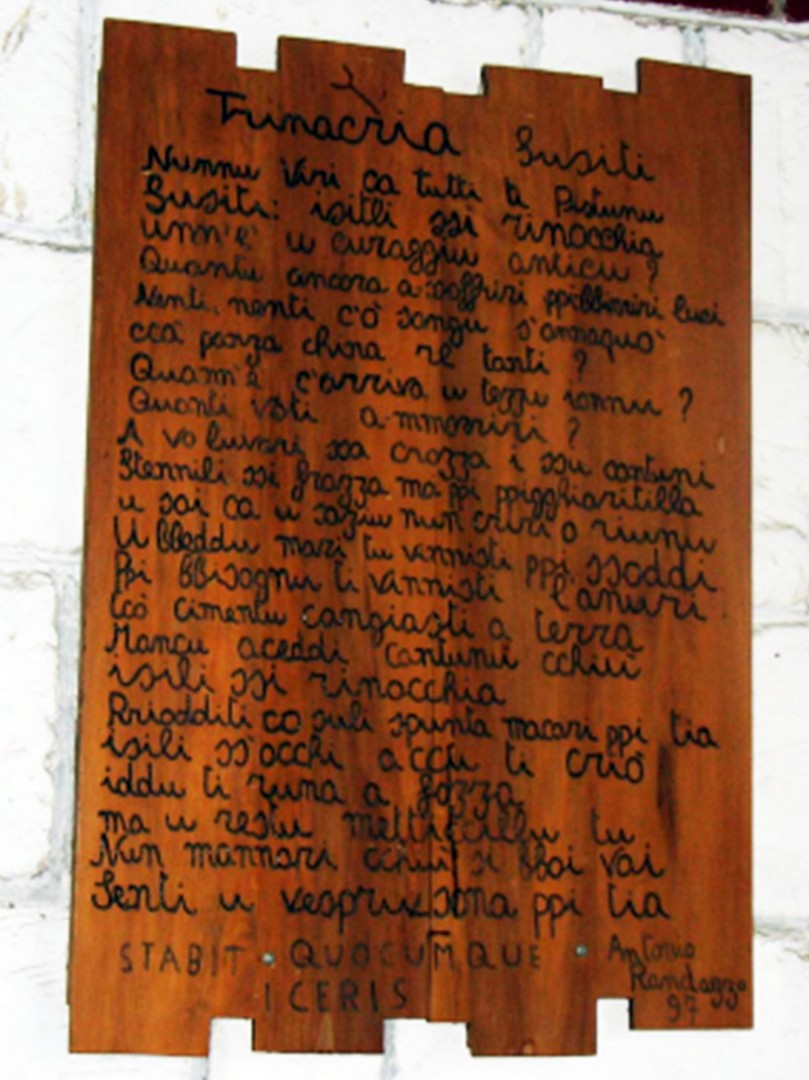 Trinacria Susiti
Nunnu viri ca tutti ti pistunu
Susiti: isitli ssi rinocchia
unn'è u curaggiu anticu ?
Quantu ancora a ssoffriri ppibbiriri luci
Nenti, nenti c'ò sangu s'annaquò
ccà panza china re tanti ?
Quann'è c'arriva u terzu jonnu ?
Quanti voti a mmoriri ?
A vo luvari ssa crozza i ssu cantuni
Stennili ssi brazza ma ppi ppigghiaritilla
u sai ca u saziu nun criri o riunu
U bbeddu mari tu vinnisti ppi ssoddi
Ppi bbisognu ti vinnisti l'anuri
Ccò cimentu cangiasti a terra
Mancu aceddi cantunu cchiù
isili ssi rinocchia
Rriodditi co suli spunta macari ppi tia
isili ss'occhi a ccu ti criò
iddu ti runa a fozza
ma u restu mettitillu tu
Nun mannari cchiù si bboi vai
Senti u vespru sona ppi tia
STABIT QUOCUMQUE
ICERIS
Antonio
Randazzo
97